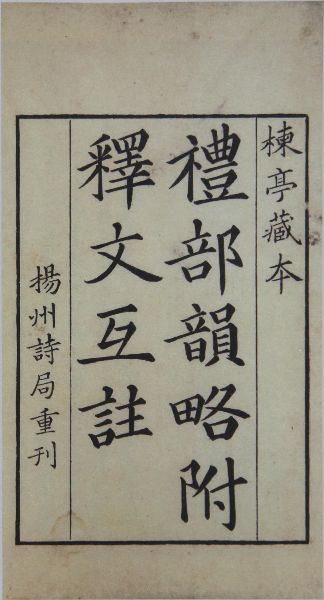 楝亭藏本
禮部韻略附
釋文互註
揚州詩局重刊